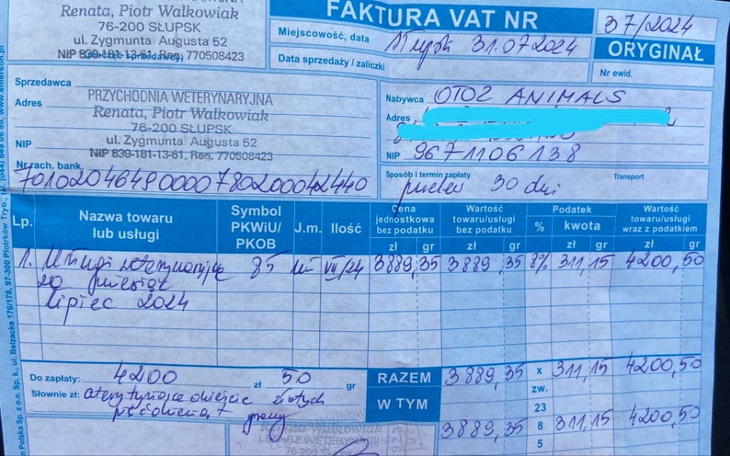 Renata, Piotr Walkowiak
76-200 SŁUPSK
ul. Zygmunta Augusta 52
NIP 839-181-13-61, Ren. 770508423
FAKTURA VAT NR 37/2024
Miejscowość, data Słupsk 31.07.2024
ORYGINAŁ
Data sprzedaży / zaliczki
Nr ewid.
Sprzedawca
Adres
PRZYCHODNIA WETERYNARYJNA
Renata, Piotr Walkowiak
76-200 SŁUPSK
ul. Zygmunta Augusta 52
NIP
NIP 839-181-13-61, Ren. 770508423
Nr rach. bank.
70102046490000780200042440
Nabywca OTOZ ANIMALS
Adres
NIP 9671106138
Sposób i termin zapłaty przelew 30 dni
Transport
Lp.
Nazwa towaru lub usługi
Symbol PKWiU/ PKOB
J.m.
Ilość
Cena jednostkowa bez podatku
zł gr
Wartość towaru/usługi bez podatku
zł gr
Podatek
% kwota
zł gr
Wartość towaru/usługi wraz z podatkiem
zł gr
1. Usługi weterynaryjne 85 VII/24 3889,35 3889,35 8% 311,15 4200,50
za miesiąc
lipiec 2024
Do zapłaty: 4200 zł 50 gr
Słownie zł: czterytysiące dwieście złotych
groszy
RAZEM 3889,35 x 311,15 4200,50
W TYM
zw.
23
3889,35 8 311,15 4200,50
5
Renata, Piotr Walkowiak
LEKARZ WETERYNARII
76-200 SŁUPSK
97-300 Piotrków Tryb.
ul. Bełzacka 176/178,